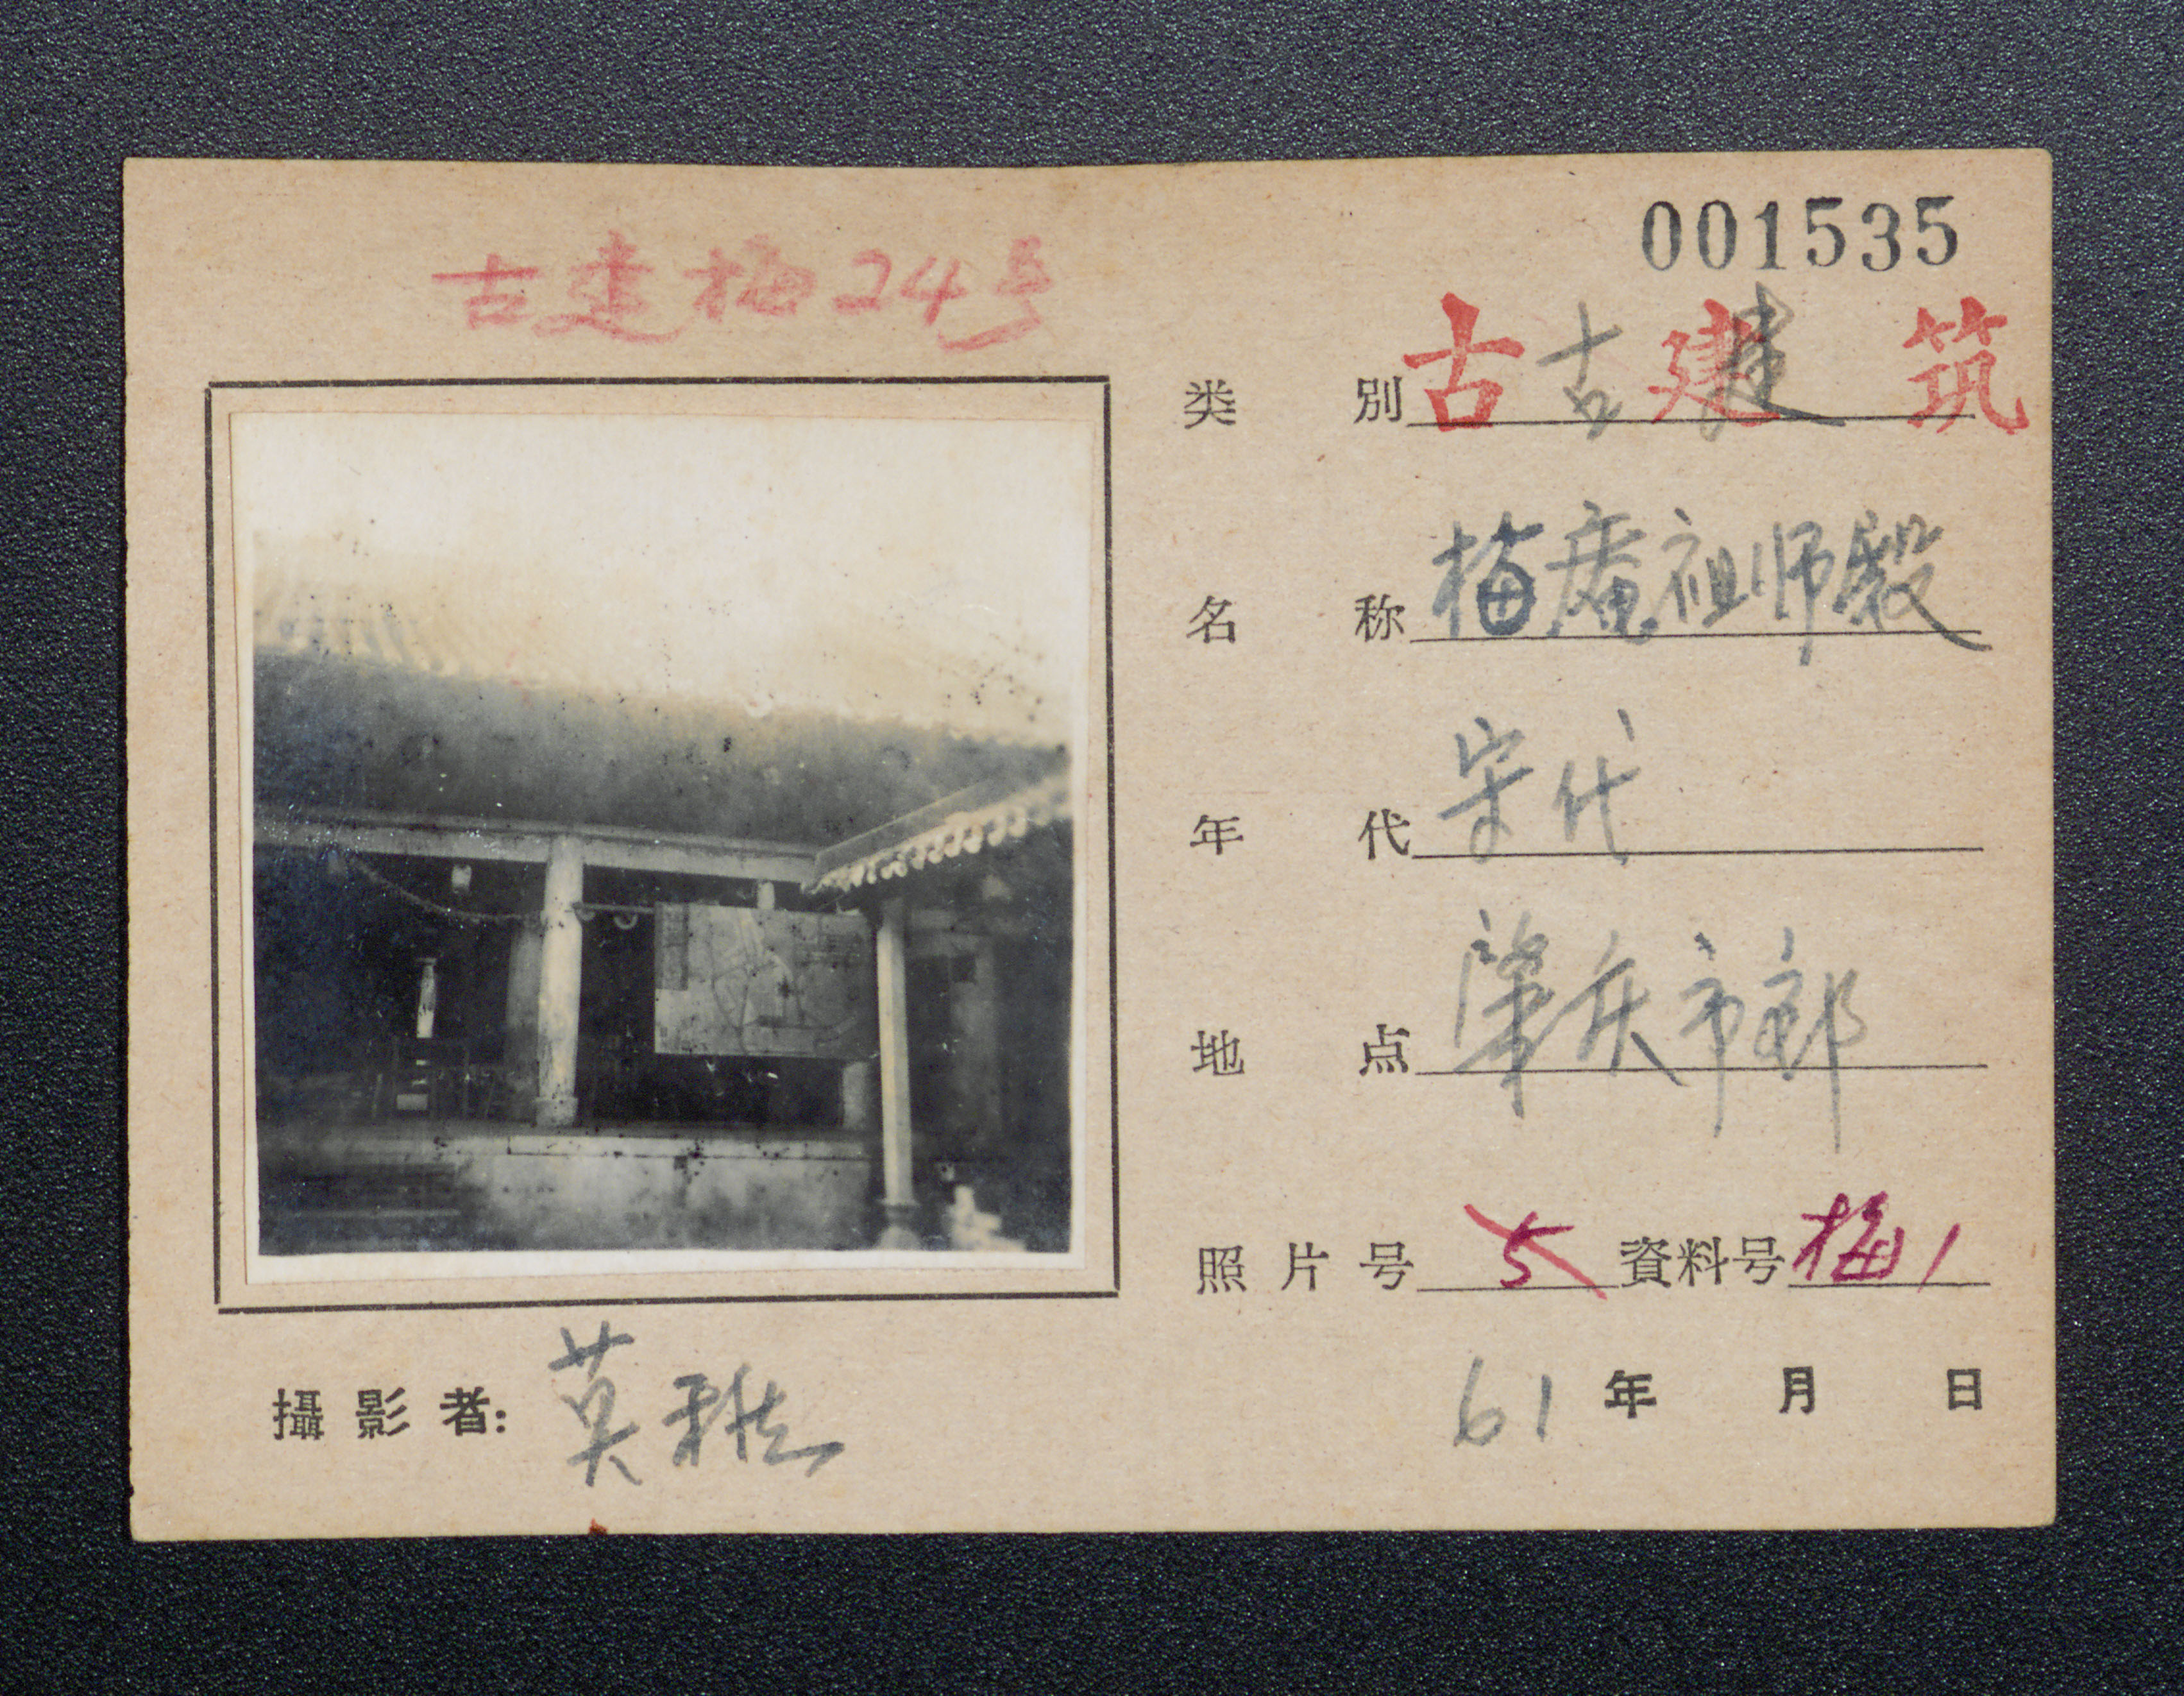 001535
古建梅24号
类别 古建筑 古建
名称 梅庵祖师殿
年代 宋代
地点 肇庆市郊
照片号 5 資料号 梅1
攝影者: 莫稚
61年 月 日